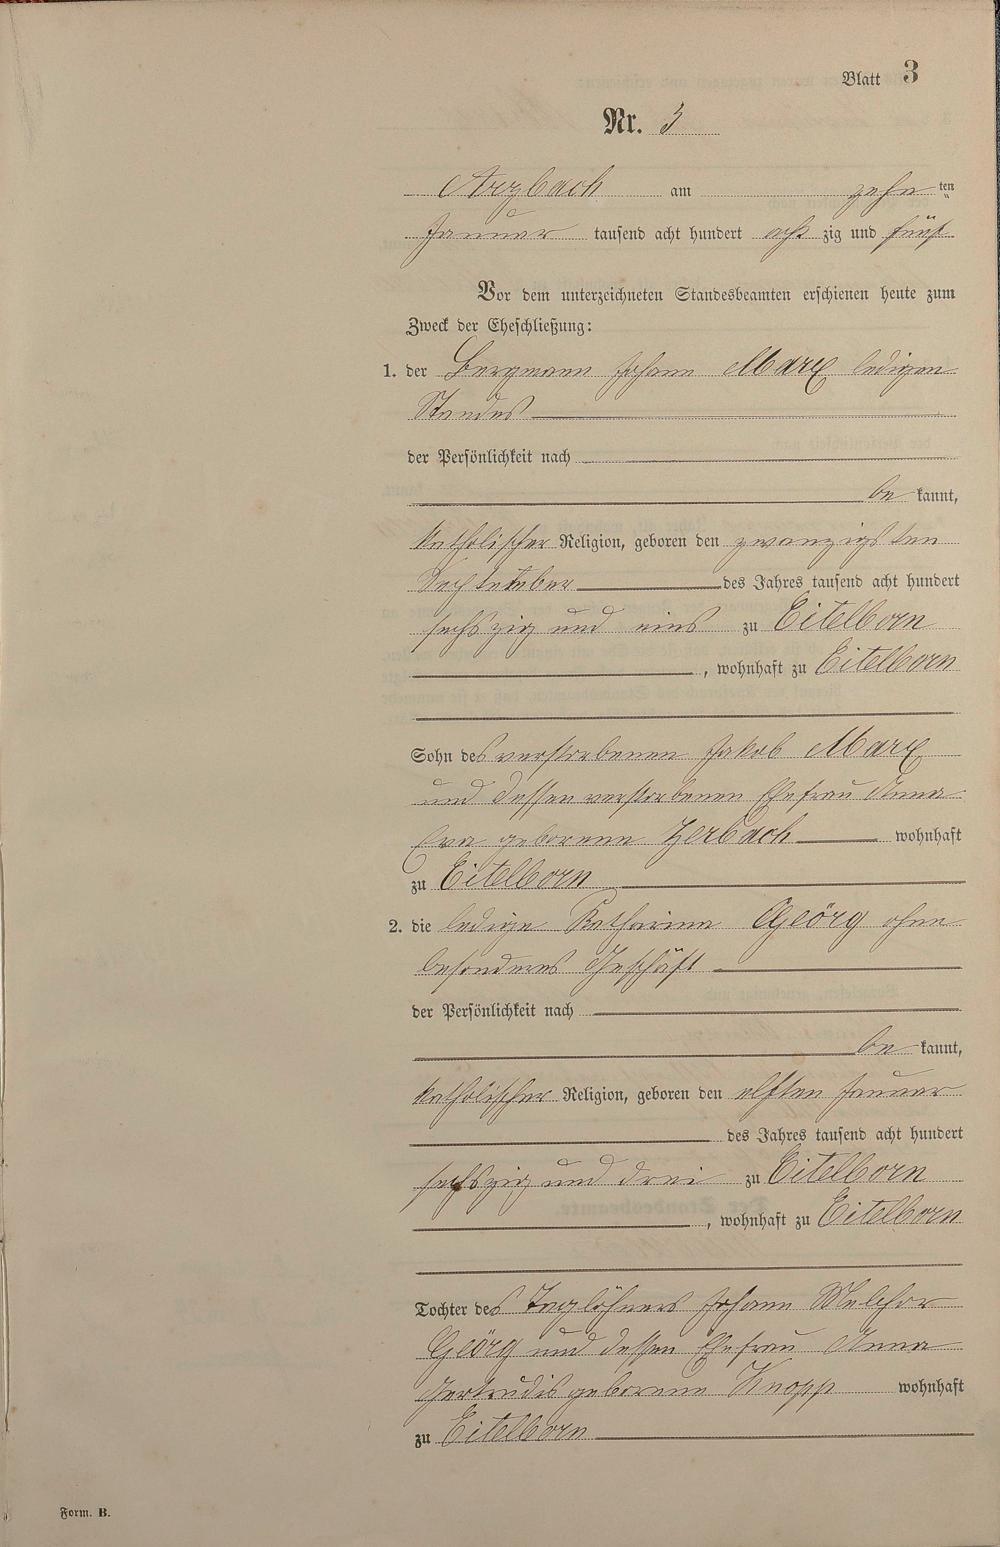 Blatt 3
Nr. 3
Arzbach am zehn ten
Januar tausend acht hundert acht zig und fünf
Vor dem unterzeichneten Standesbeamten erschienen heute zum
Zweck der Eheschließung:
1. der Bergmann Johann Marx ledigen
Standes
der Persönlichkeit nach
be kannt,
katholischer Religion, geboren den zwanzigsten
September des Jahres tausend acht hundert
sechszig und eins zu Eitelborn
, wohnhaft zu Eitelborn
Sohn des verstorbenen Jakob Marx
und dessen verstorbenen Ehefrau Anna
Eva geborenen Zerbach wohnhaft
zu Eitelborn
2. die ledige Katharina Geörg ohne
besonderes Geschäft
der Persönlichkeit nach
be kannt,
katholischer Religion, geboren den elften Januar
des Jahres tausend acht hundert
sechszig und drei zu Eitelborn
, wohnhaft zu Eitelborn
Tochter des Taglöhners Johann Melchor
Geörg und dessen Ehefrau Anna
Gertrudis geborenen Knopp wohnhaft
zu Eitelborn
Form. B.